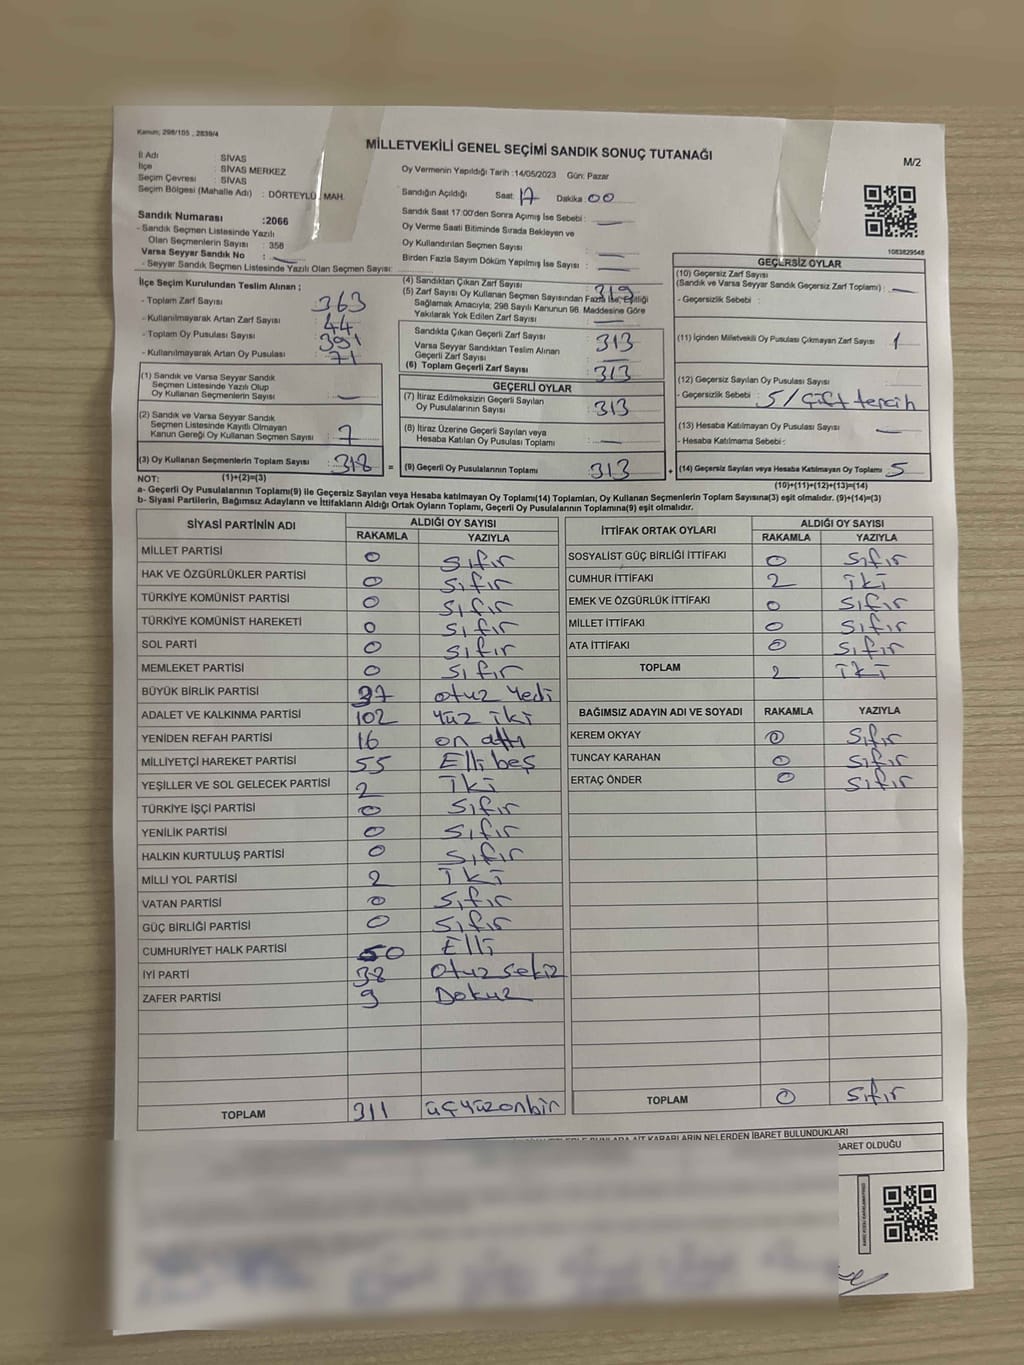 Kanun; 298/105 , 2839/4
MİLLETVEKİLİ GENEL SEÇİMİ SANDIK SONUÇ TUTANAĞI
M/2
İl Adı : SİVAS
İlçe : SİVAS MERKEZ
Seçim Çevresi : SİVAS
Seçim Bölgesi (Mahalle Adı) : DÖRTEYLÜL MAH.
Sandık Numarası :2066
- Sandık Seçmen Listesinde Yazılı
Olan Seçmenlerin Sayısı : 358
Varsa Seyyar Sandık No : —
- Seyyar Sandık Seçmen Listesinde Yazılı Olan Seçmen Sayısı:
Oy Vermenin Yapıldığı Tarih :14/05/2023 Gün: Pazar
Sandığın Açıldığı Saat: 17 Dakika: 00
Sandık Saat 17:00'den Sonra Açımış İse Sebebi : —
Oy Verme Saati Bitiminde Sırada Bekleyen ve
Oy Kullandırılan Seçmen Sayısı —
Birden Fazla Sayım Döküm Yapılmış İse Sayısı : —
1083829548
İlçe Seçim Kurulundan Teslim Alınan ;
- Toplam Zarf Sayısı : 363
- Kullanılmayarak Artan Zarf Sayısı : 44
- Toplam Oy Pusulası Sayısı : 391
- Kullanılmayarak Artan Oy Pusulası : 71
(1) Sandık ve Varsa Seyyar Sandık
Seçmen Listesinde Yazılı Olup
Oy Kullanan Seçmen Sayısı : —
(2) Sandık ve Varsa Seyyar Sandık
Seçmen Listesinde Kayıtlı Olmayan
Kanun Gereği Oy Kullanan Seçmen Sayısı : 7
(3) Oy Kullanan Seçmenlerin Toplam Sayısı : 318
(4) Sandıktan Çıkan Zarf Sayısı : 319
(5) Zarf Sayısı Oy Kullanan Seçmen Sayısından Fazla İse, Eşitliği
Sağlamak Amacıyla; 298 Sayılı Kanunun 98. Maddesine Göre
Yakılarak Yok Edilen Zarf Sayısı : —
Sandıkta Çıkan Geçerli Zarf Sayısı : 313
Varsa Seyyar Sandıktan Teslim Alınan
Geçerli Zarf Sayısı : —
(6) Toplam Geçerli Zarf Sayısı : 313
GEÇERLİ OYLAR
(7) İtiraz Edilmeksizin Geçerli Sayılan
Oy Pusulalarının Sayısı : 313
(8) İtiraz Üzerine Geçerli Sayılan veya
Hesaba Katılan Oy Pusulası Toplamı : —
= (9) Geçerli Oy Pusulalarının Toplamı 313
GEÇERSİZ OYLAR
(10) Geçersiz Zarf Sayısı
(Sandık ve Varsa Seyyar Sandık Geçersiz Zarf Toplamı) : —
- Geçersizlik Sebebi :
(11) İçinden Milletvekili Oy Pusulası Çıkmayan Zarf Sayısı : 1
(12) Geçersiz Sayılan Oy Pusulası Sayısı :
- Geçersizlik Sebebi : 5/ Çift tercih
(13) Hesaba Katılmayan Oy Pusulası Sayısı : —
- Hesaba Katılmama Sebebi :
+ (14) Geçersiz Sayılan veya Hesaba Katılmayan Oy Toplamı : 5
NOT: (1)+(2)=(3)
(10)+(11)+(12)+(13)=(14)
a- Geçerli Oy Pusulalarının Toplamı(9) ile Geçersiz Sayılan veya Hesaba katılmayan Oy Toplamı(14) Toplamları, Oy Kullanan Seçmenlerin Toplam Sayısına(3) eşit olmalıdır. (9)+(14)=(3)
b- Siyasi Partilerin, Bağımsız Adayların ve İttifakların Aldığı Ortak Oyların Toplamı, Geçerli Oy Pusulalarının Toplamına(9) eşit olmalıdır.
SİYASİ PARTİNİN ADI ALDIĞI OY SAYISI
RAKAMLA YAZIYLA
MİLLET PARTİSİ 0 sıfır
HAK VE ÖZGÜRLÜKLER PARTİSİ 0 sıfır
TÜRKİYE KOMÜNİST PARTİSİ 0 sıfır
TÜRKİYE KOMÜNİST HAREKETİ 0 sıfır
SOL PARTİ 0 sıfır
MEMLEKET PARTİSİ 0 sıfır
BÜYÜK BİRLİK PARTİSİ 37 otuz yedi
ADALET VE KALKINMA PARTİSİ 102 Yüz iki
YENİDEN REFAH PARTİSİ 16 on altı
MİLLİYETÇİ HAREKET PARTİSİ 55 Elli beş
YEŞİLLER VE SOL GELECEK PARTİSİ 2 İki
TÜRKİYE İŞÇİ PARTİSİ 0 sıfır
YENİLİK PARTİSİ 0 sıfır
HALKIN KURTULUŞ PARTİSİ 0 sıfır
MİLLİ YOL PARTİSİ 2 İki
VATAN PARTİSİ 0 sıfır
GÜÇ BİRLİĞİ PARTİSİ 0 sıfır
CUMHURİYET HALK PARTİSİ 50 Elli
İYİ PARTİ 38 Otuz sekiz
ZAFER PARTİSİ 9 Dokuz
TOPLAM 311 üçyüzonbir
İTTİFAK ORTAK OYLARI ALDIĞI OY SAYISI
RAKAMLA YAZIYLA
SOSYALİST GÜÇ BİRLİĞİ İTTİFAKI 0 sıfır
CUMHUR İTTİFAKI 2 iki
EMEK VE ÖZGÜRLÜK İTTİFAKI 0 sıfır
MİLLET İTTİFAKI 0 sıfır
ATA İTTİFAKI 0 sıfır
TOPLAM 2 iki
BAĞIMSIZ ADAYIN ADI VE SOYADI RAKAMLA YAZIYLA
KEREM OKYAY 0 sıfır
TUNCAY KARAHAN 0 sıfır
ERTAÇ ÖNDER 0 sıfır
TOPLAM 0 sıfır
KARARLARIN NELERDEN İBARET BULUNDUKLARI
İBARET OLDUĞU